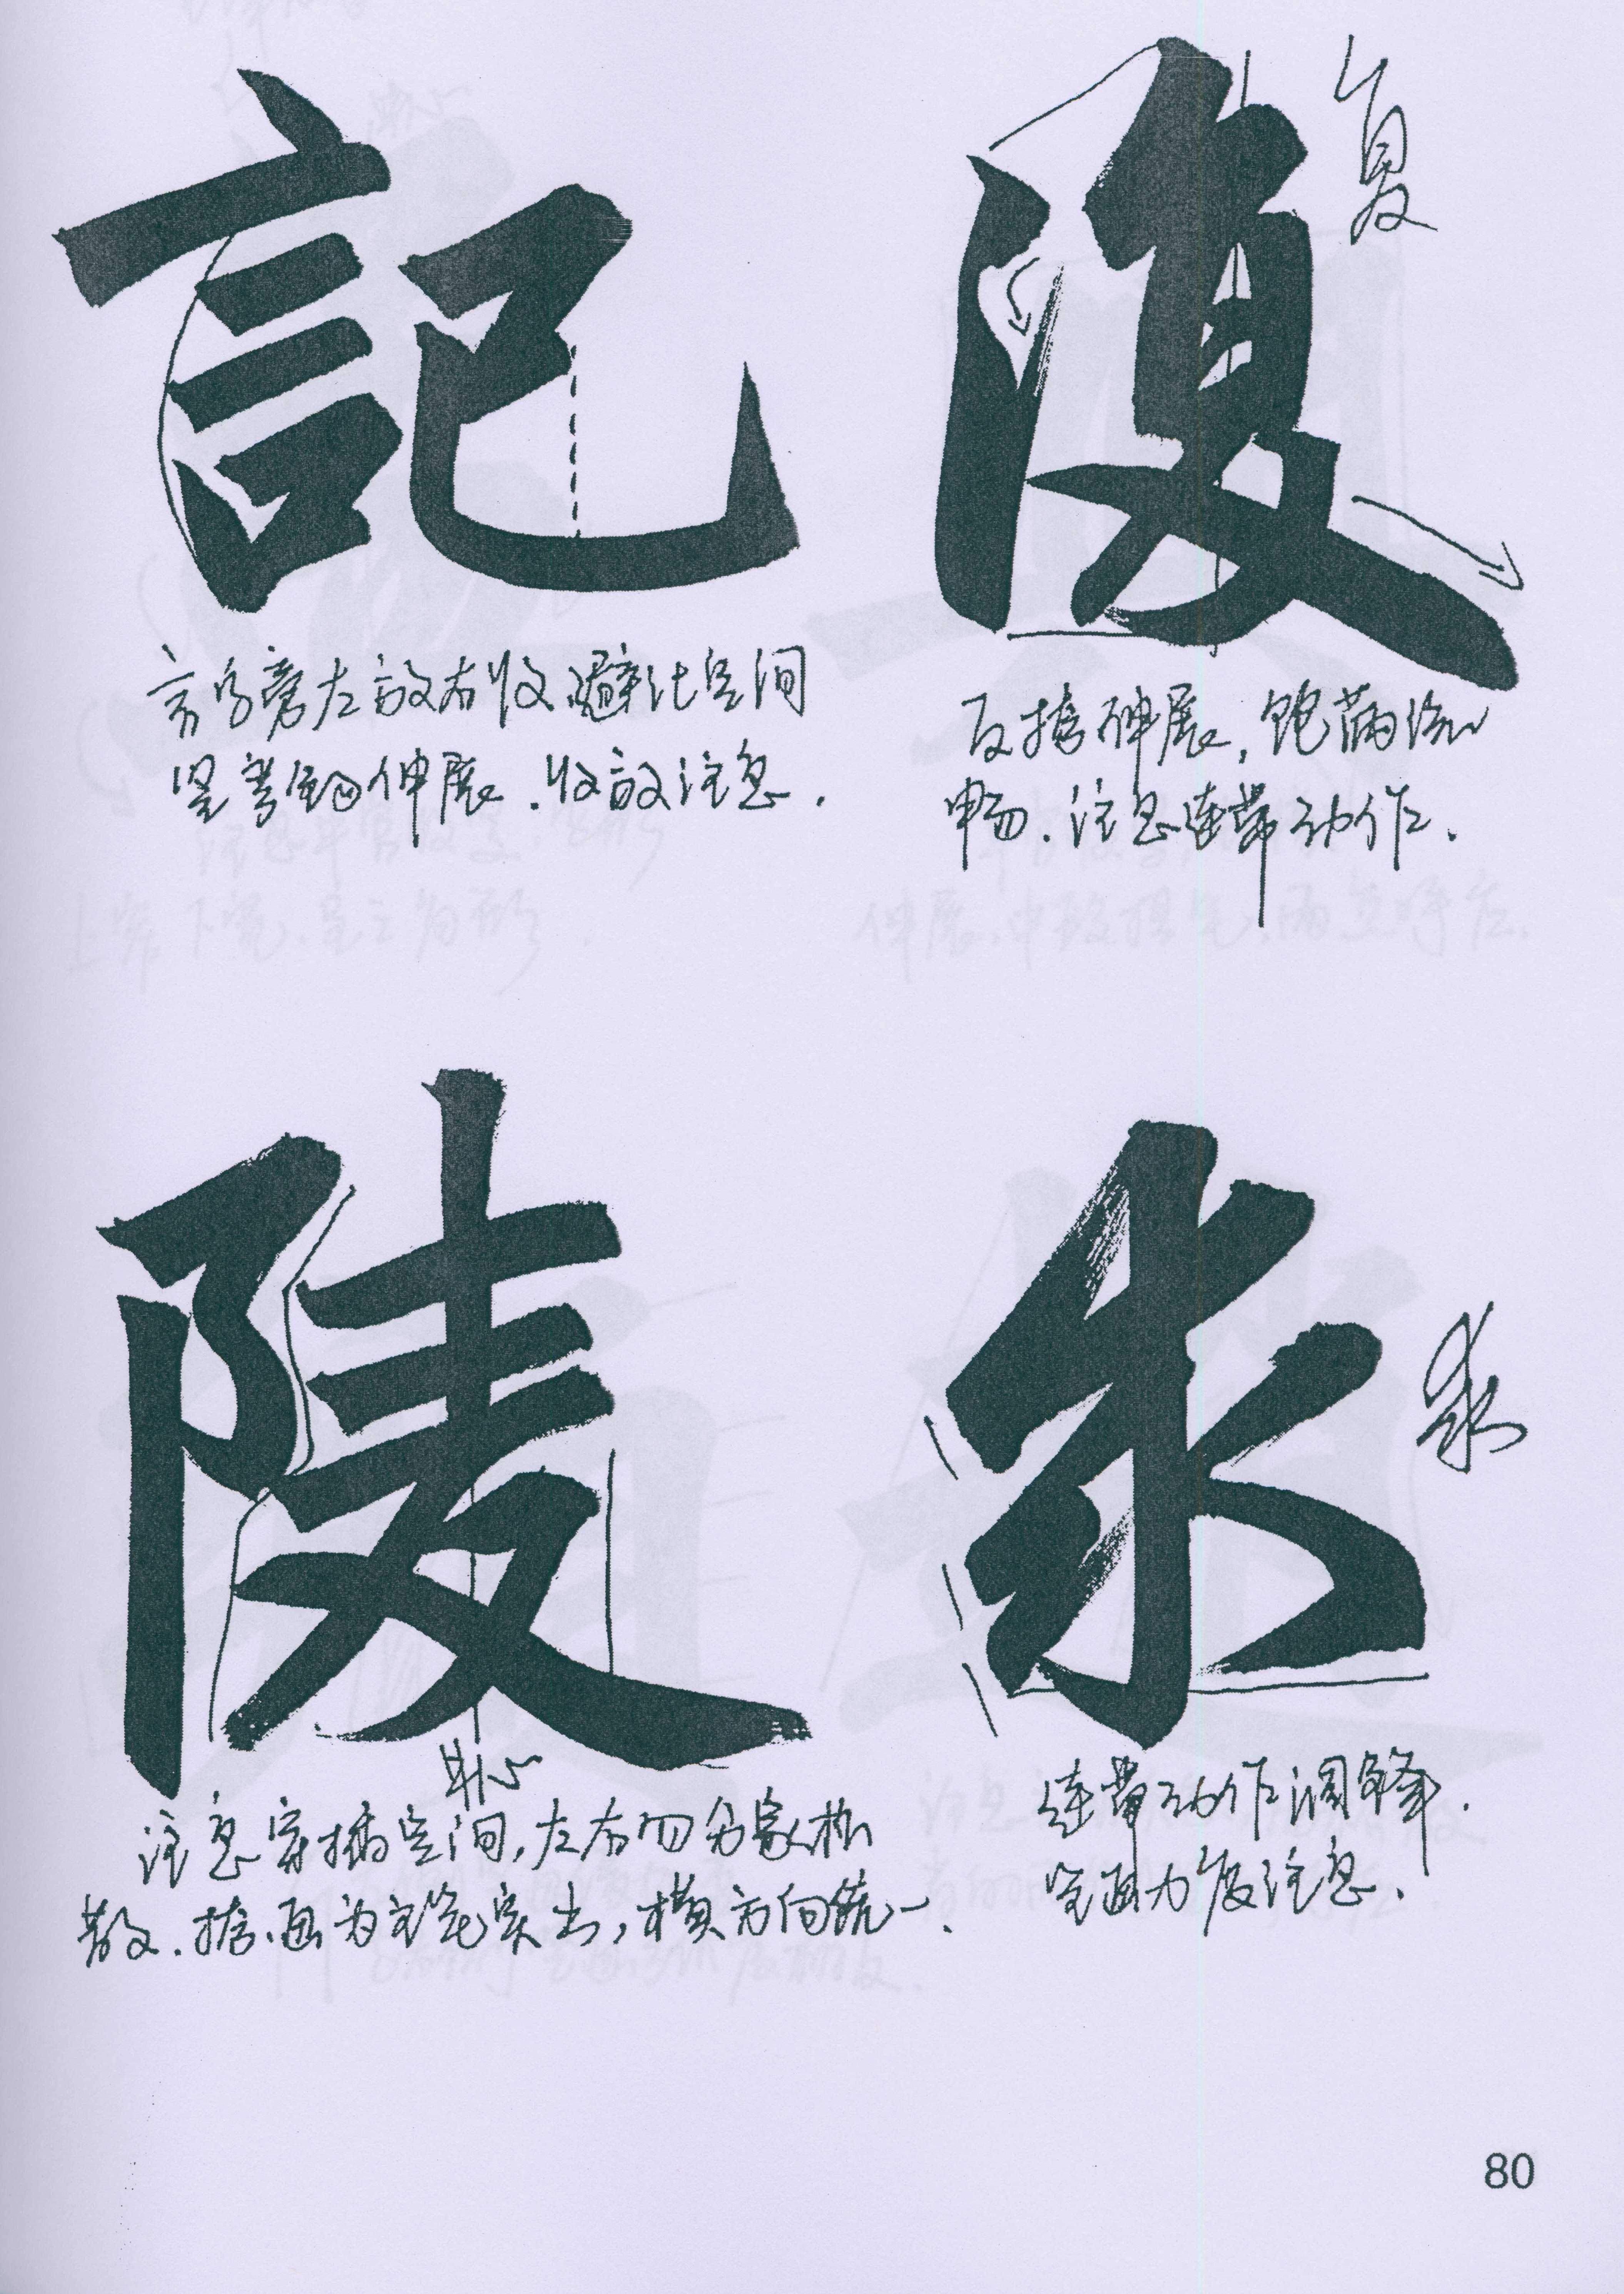 記
言字旁左放右收,避让空间
竖弯钩伸展.收放注意.
復
复
反捺伸展,饱满流
畅.注意连带动作.
陵
中心
注意穿插空间,左右勿分家松
散.捺画为主笔突出,横方向统一.
求
求
连带动作调锋.
竖画力度注意.
80